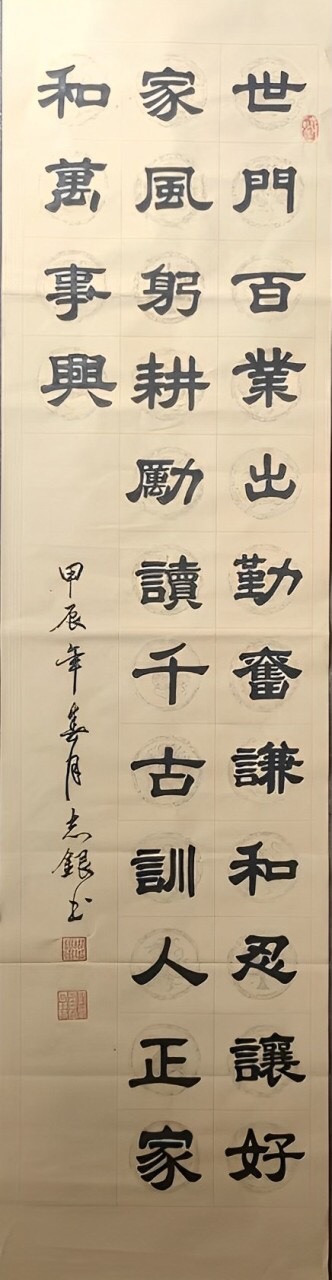 世門百業出勤奮謙和忍讓好
家風躬耕勵讀千古訓人正家
和萬事興
甲辰年春月志銀书